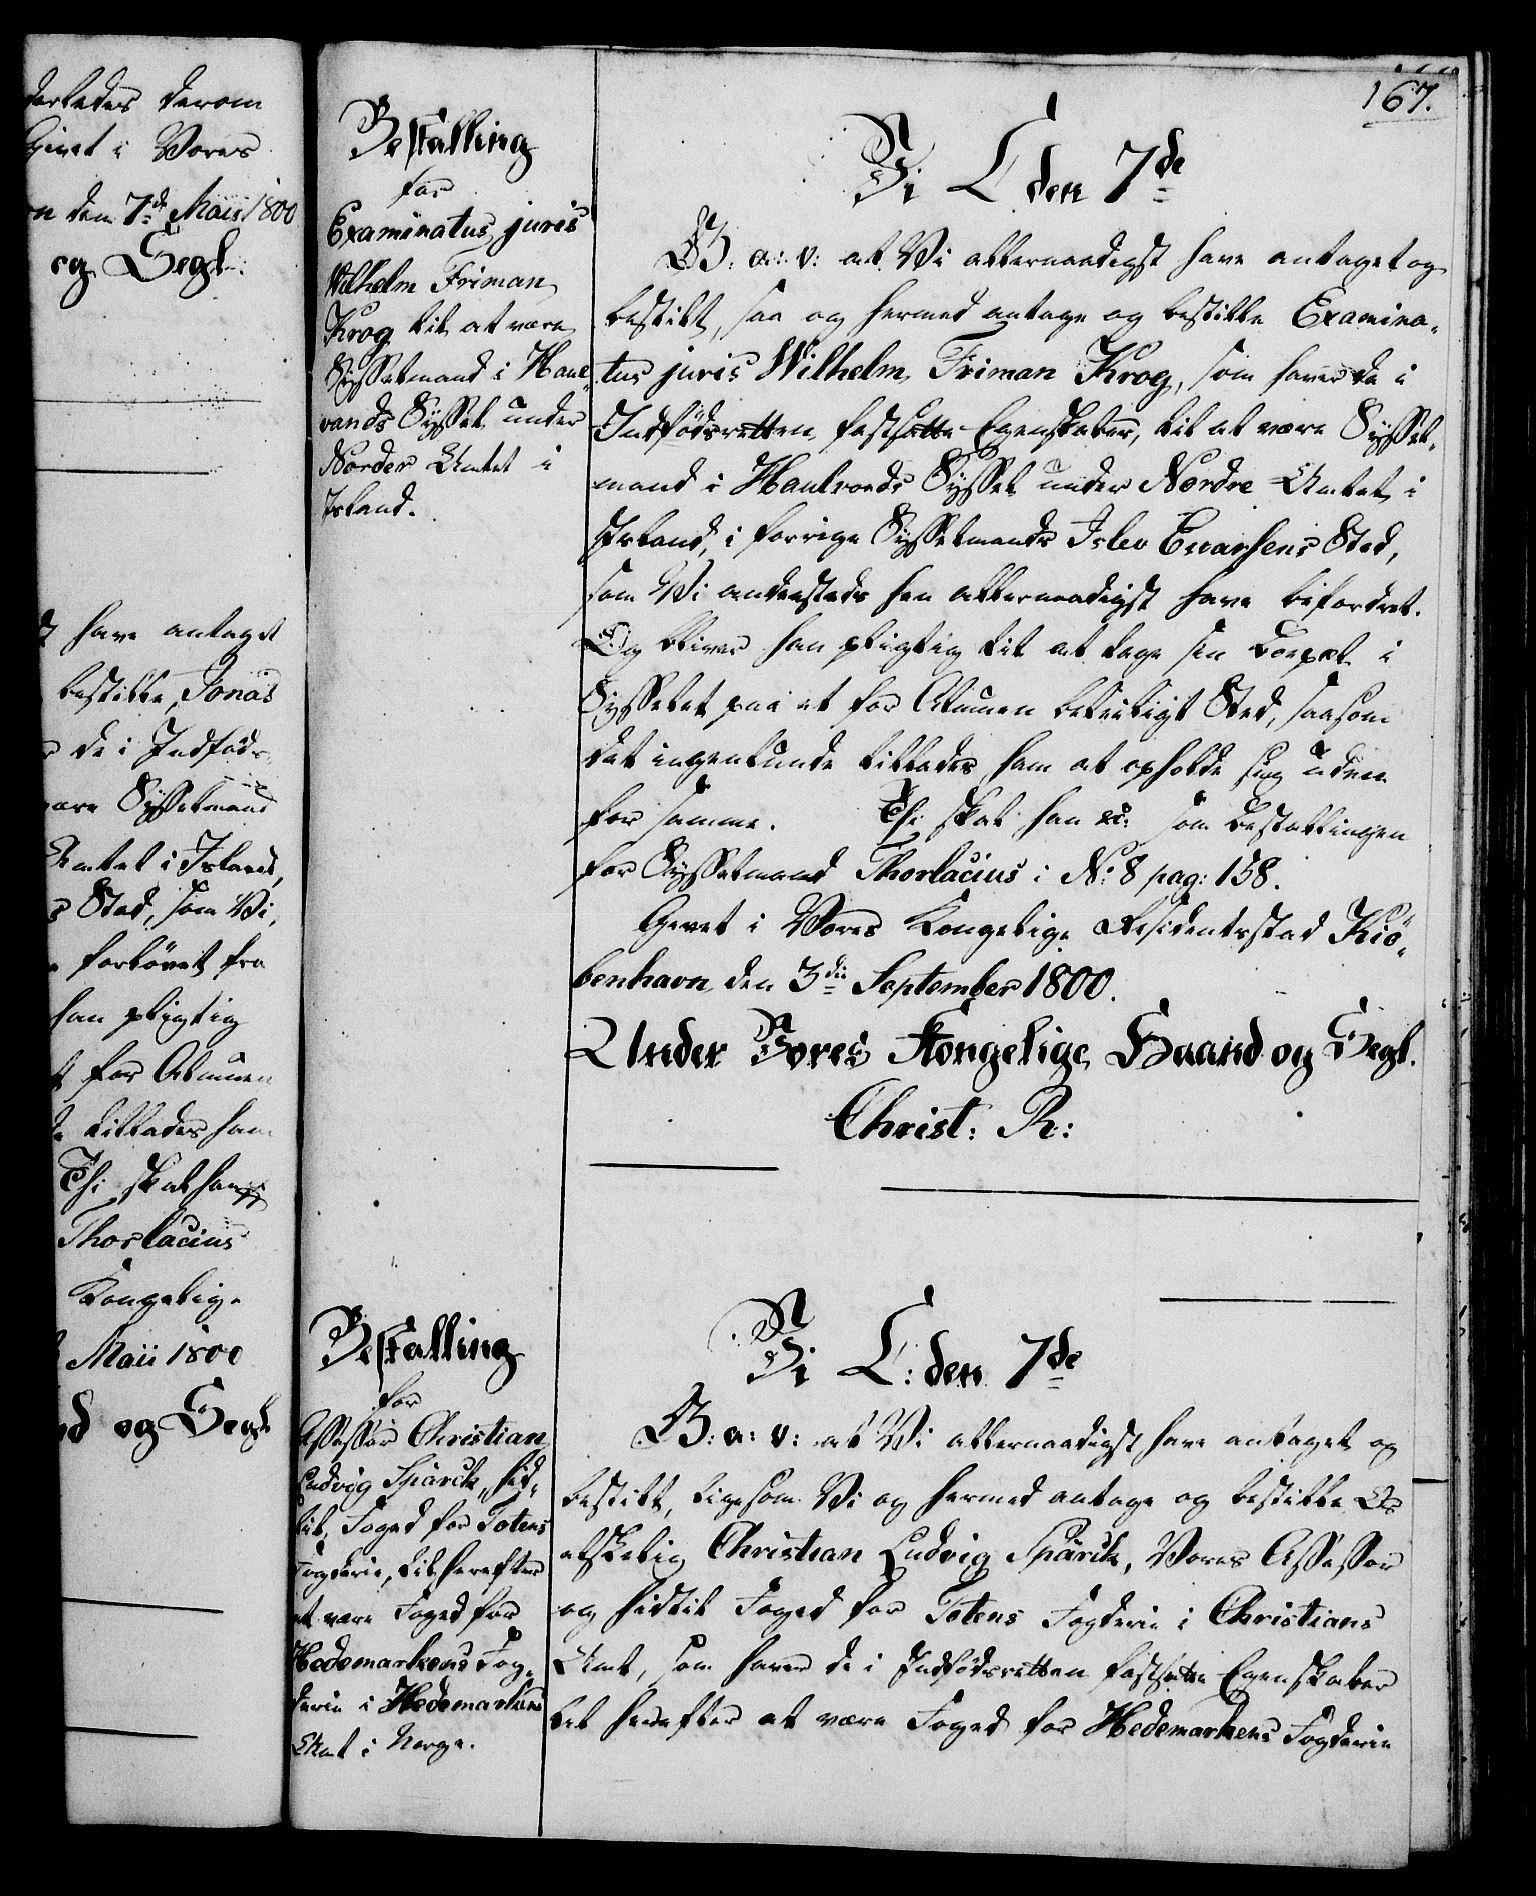 derledes derom
Givet i Vores
den 7de Maii 1800
og Segl.
have antaget
bestille, Jonas
de i Indføds
være Sysselmand
Amtet i Island,
Sted, som Vi
forlovet fra
han pligtig
for Almuen
tillades ham
Thi skal han
Thorlacius
Kongelige
Maii 1800
og Segl
167.
Bestalling
for
Examinatus juris
Wilhelm Friman
Krog til at være
Sysselmand i Hune
vands Syssel under
Norder Amtet i
Island.
Vi C den 7de
G. a: v: at Vi allernaadigst have antaget og
bestilt, saa og hermed antage og bestille Examina-
tus juris Wilhelm Friman Krog, som haver de i
Indfødsretten fastsatte Egenskaber, til at være Syssel-
mand i Hunevands Syssel under Nordre Amtet i
Island, i forrige Sysselmands Islev Enarsens Sted,
som Vi andensteds hen allernaadigst have befordret.
Og bliver han pligtig til at tage sin Boepæl i
Sysselet paa et for Almuen beleiligt Sted, saasom
det ingenlunde tillades ham at opholde sig uden
for samme. Thi skal han &c: som Bestallingen
for Sysselmand Thorlacius i No: 8 pag: 158.
Gevet i Vores Kongelige Residentsstad Kiö-
benhavn den 3die September 1800.
Under Vores Kongelige Haand og Segl.
Christ: R:
Bestalling
for
Assessor Christian
Ludvig Spärck, hid-
til Foged for Totens
Fogderie, til herefter
at være Foged for
Hedemarkens Fog-
derie i Hedemarkens
Amt i Norge.
Vi C: den 7de
G: a: v: at Vi allernaadigst have antaget og
bestilt, ligesom Vi og hermed antage og bestille Os
elskelig Christian Ludvig Spärck, Vores Assessor
og hidtil Foged for Totens Fogderie i Christians
Amt, som haver de i Indfødsretten fastsatte Egenskaber
til herefter at være Foged for Hedemarkens Fogderie